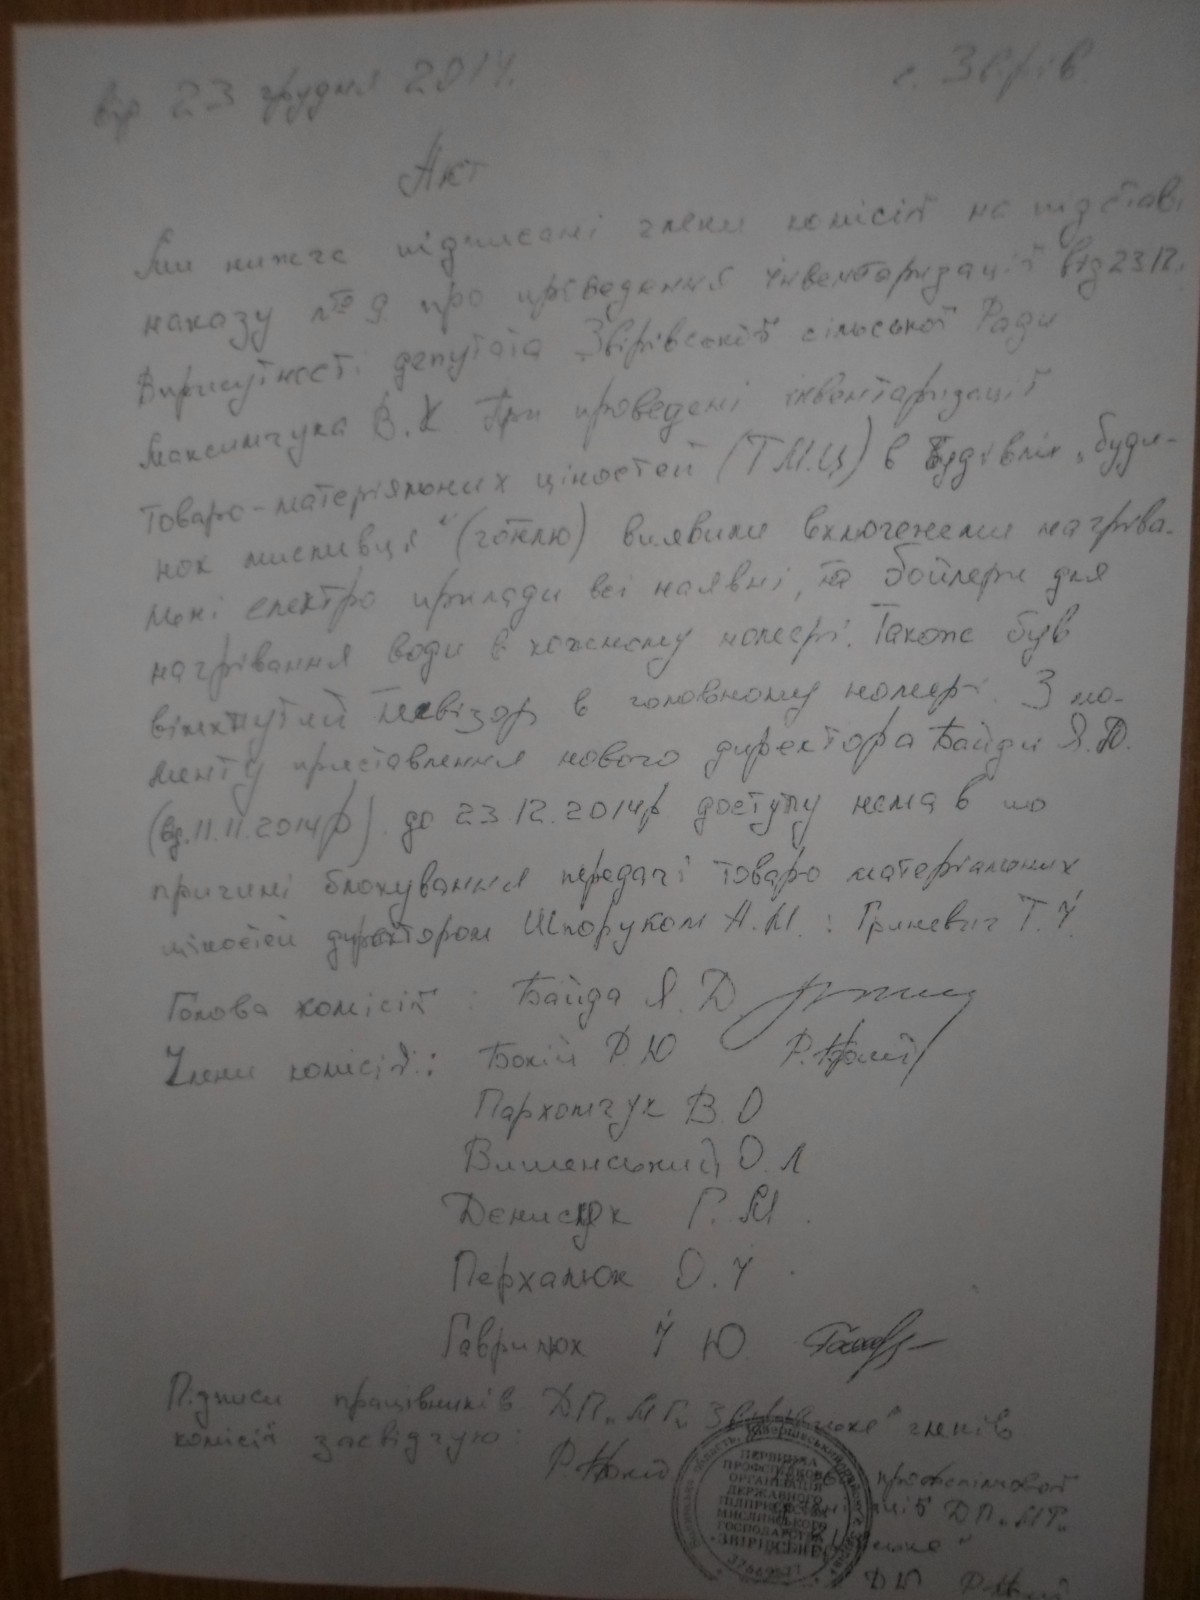 від 23 грудня 2014. с. Звірів
Акт
Ми нижче підписані члени комісій на підставі
наказу №9 про проведення інвентаризації від 23.12.
Вприсутності депутата Звірівської сільської Ради
Максимчука В.К При проведені інвентаризації
товаро-матеріяльних ціностей (ТМЦ) в будівлі „буди-
нок мисливця" (готлю) виявили включеними нагріва-
льні електро прилади всі наявні, та бойлери для
нагрівання води в кожному номері. Також був
вімкнутий телевізор в головному номері. З мо-
менту приставлення нового директора Байди Я.Д.
(від.11.11.2014р). до 23.12.2014р доступу нема в по
причині блокування передачі товаро матеріальних
ціностей директором Шпоруком А.М. : Гриневич Т.І.
Голова комісій : Байда Я. Д.
Члени комісій: Бокій Р.Ю
Пархомчук В.О
Вишенський О.Л
Денисюк Г.М.
Перхалюк О.І.
Гаврилюк І Ю.
Підписи працівників ДП„МГ„Звірівське" членів
комісій засвідчую:
профспілкової
ДП„МГ„
ПЕРВИННА
ПРОФСПІЛКОВА
ОРГАНІЗАЦІЯ
ДЕРЖАВНОГО
ПІДПРИЄМСТВА
МИСЛИВСЬКОГО
ГОСПОДАРСТВА
"ЗВІРІВСЬКЕ"